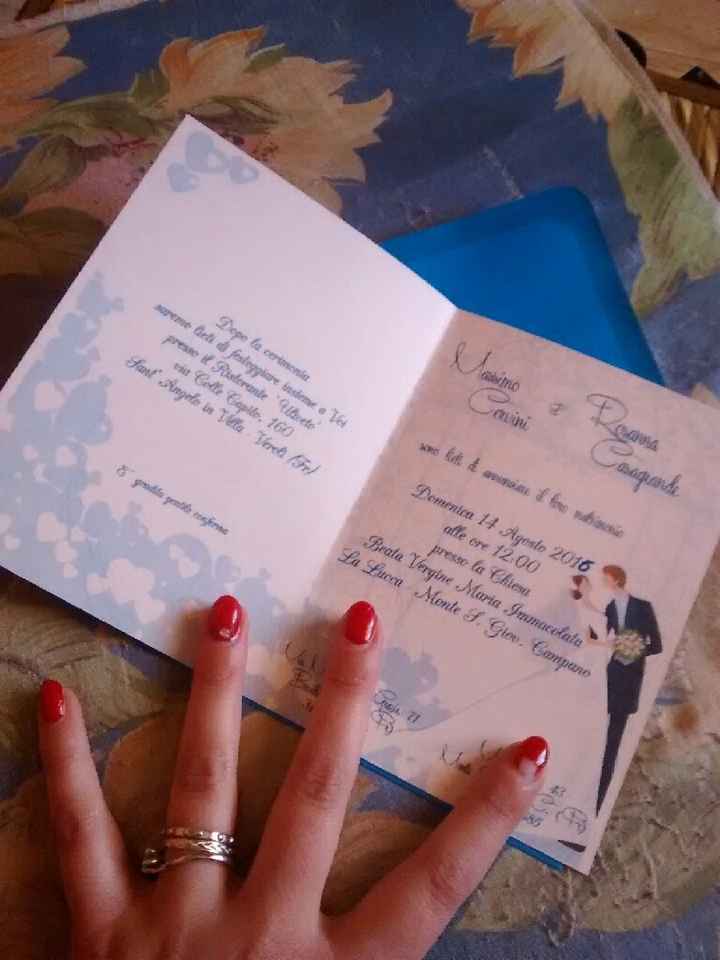 Dopo la cerimonia
saremo lieti di festeggiare insieme a Voi
presso il Ristorante "Uliveto"
via Colle Capito, 160
Sant' Angelo in Villa - Veroli (Fr)
E' gradita gentile conferma
Massimo
Cervini
e
Rosanna
Casagrande
sono lieti di annunciare il loro matrimonio
Domenica 14 Agosto 2016
alle ore 12:00
presso la Chiesa
Beata Vergine Maria Immacolata
La Lucca - Monte S. Giov. Campano
71
(Fr)
43
(Fr)